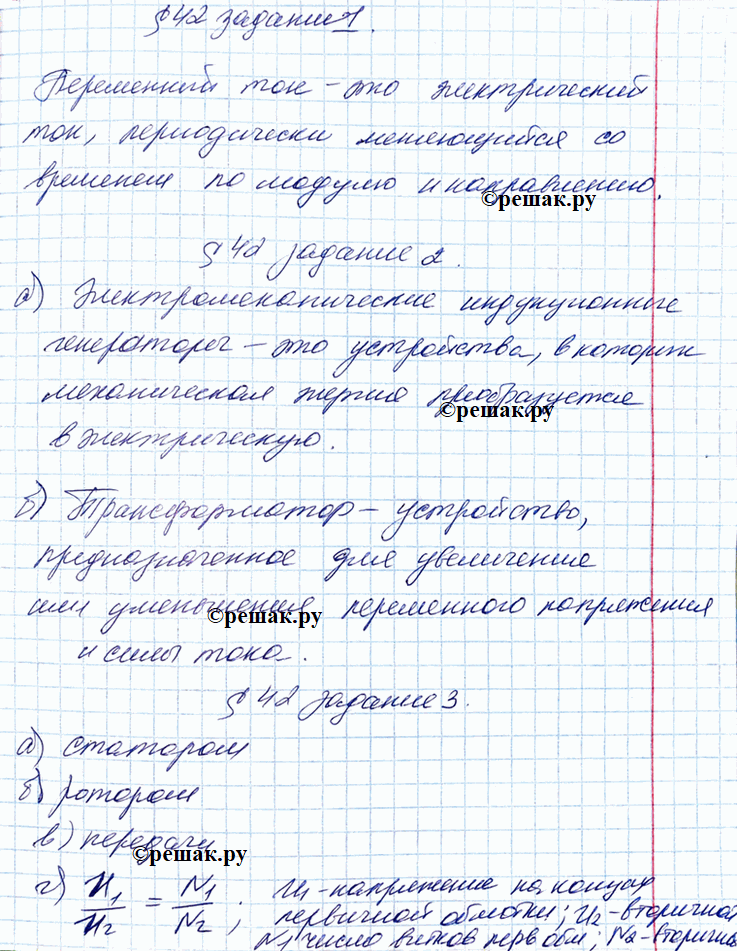 § 42 задание 1.
Переменный ток – это электрический
ток, периодически меняющийся со
временем по модулю и направлению.
©решак.ру
§ 42 задание 2.
а) Электромеханические индукционные
генераторы – это устройства, в которых
механическая энергия преобразуется
©решак.ру
в электрическую.
б) Трансформатор – устройство,
предназначенное для увеличения
или уменьшения переменного напряжения
©решак.ру
и силы тока.
§ 42 задание 3.
а) статором
б) ротором
в) передачи
©решак.ру
г) U1/U2 = N1/N2; U1 - напряжение на концах
первичной обмотки; U2 - вторичной
N1 число витков перв обм. N2 - вторичн